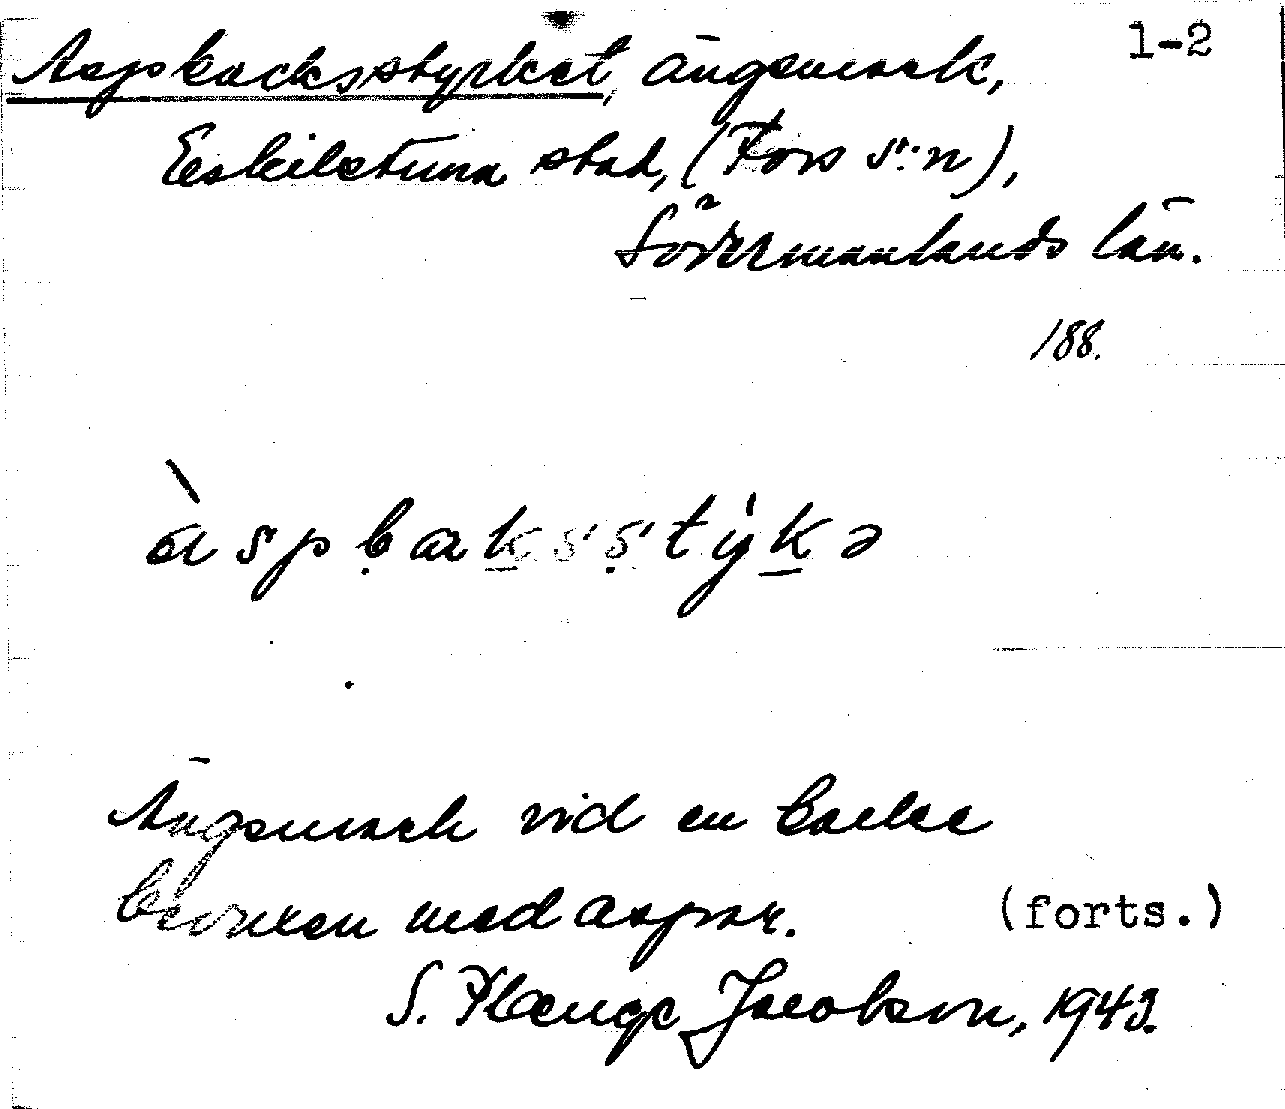 Aspbacksstycket, ängsmark, 1-2
Eskilstuna stad, (Fors s:n),
Södermanlands län.
188.
àspbaksstýkə
Ängsmark vid en backe
bevuxen med aspar. (forts.)
S. Plænge Jacobson, 1943.